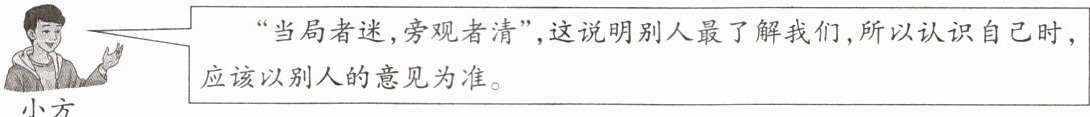 “当局者迷,旁观者清”,这说明别人最了解我们,所以认识自己时,
应该以别人的意见为准。
小方